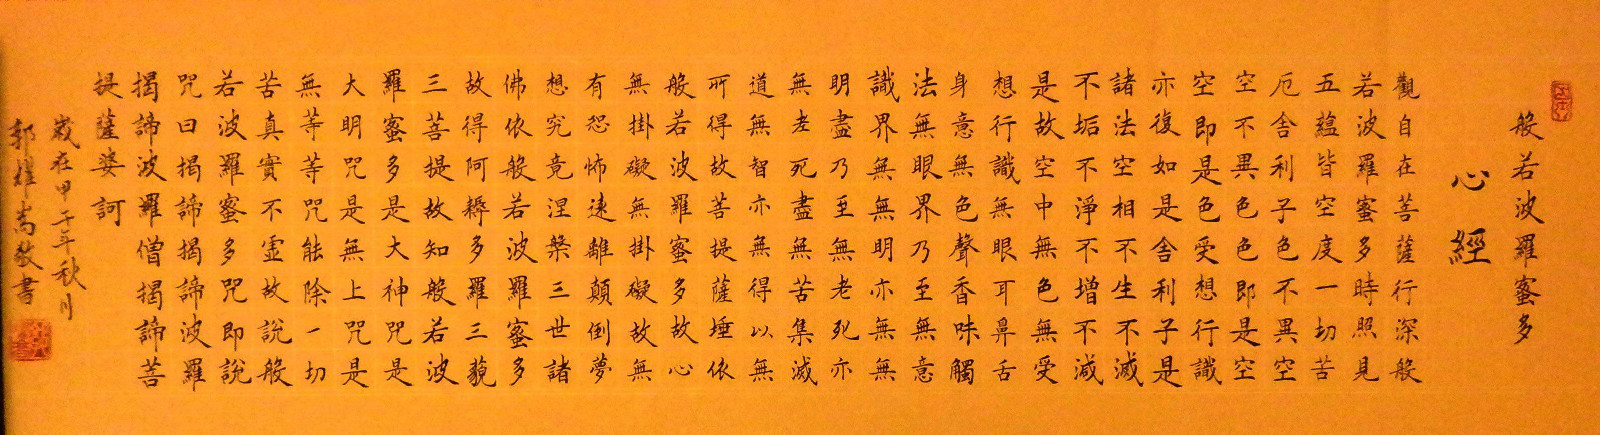 般若波羅蜜多
心經
觀自在菩薩行深般
若波羅蜜多時照見
五蘊皆空度一切苦
厄舍利子色不異空
空不異色色即是空
空即是色受想行識
亦復如是舍利子是
諸法空相不生不滅
不垢不淨不增不減
是故空中無色無受
想行識無眼耳鼻舌
身意無色聲香味觸
法無眼界乃至無意
識界無無明亦無無
明盡乃至無老死亦
無老死盡無苦集滅
道無智亦無得以無
所得故菩提薩埵依
般若波羅蜜多故心
無掛礙無掛礙故無
有恐怖遠離顛倒夢
想究竟涅槃三世諸
佛依般若波羅蜜多
故得阿耨多羅三藐
三菩提故知般若波
羅蜜多是大神咒是
大明咒是無上咒是
無等等咒能除一切
苦真實不虛故說般
若波羅蜜多咒即說
咒曰揭諦揭諦波羅
揭諦波羅僧揭諦菩
提薩婆訶
歲在甲子年秋月
郭雄嵩敬書